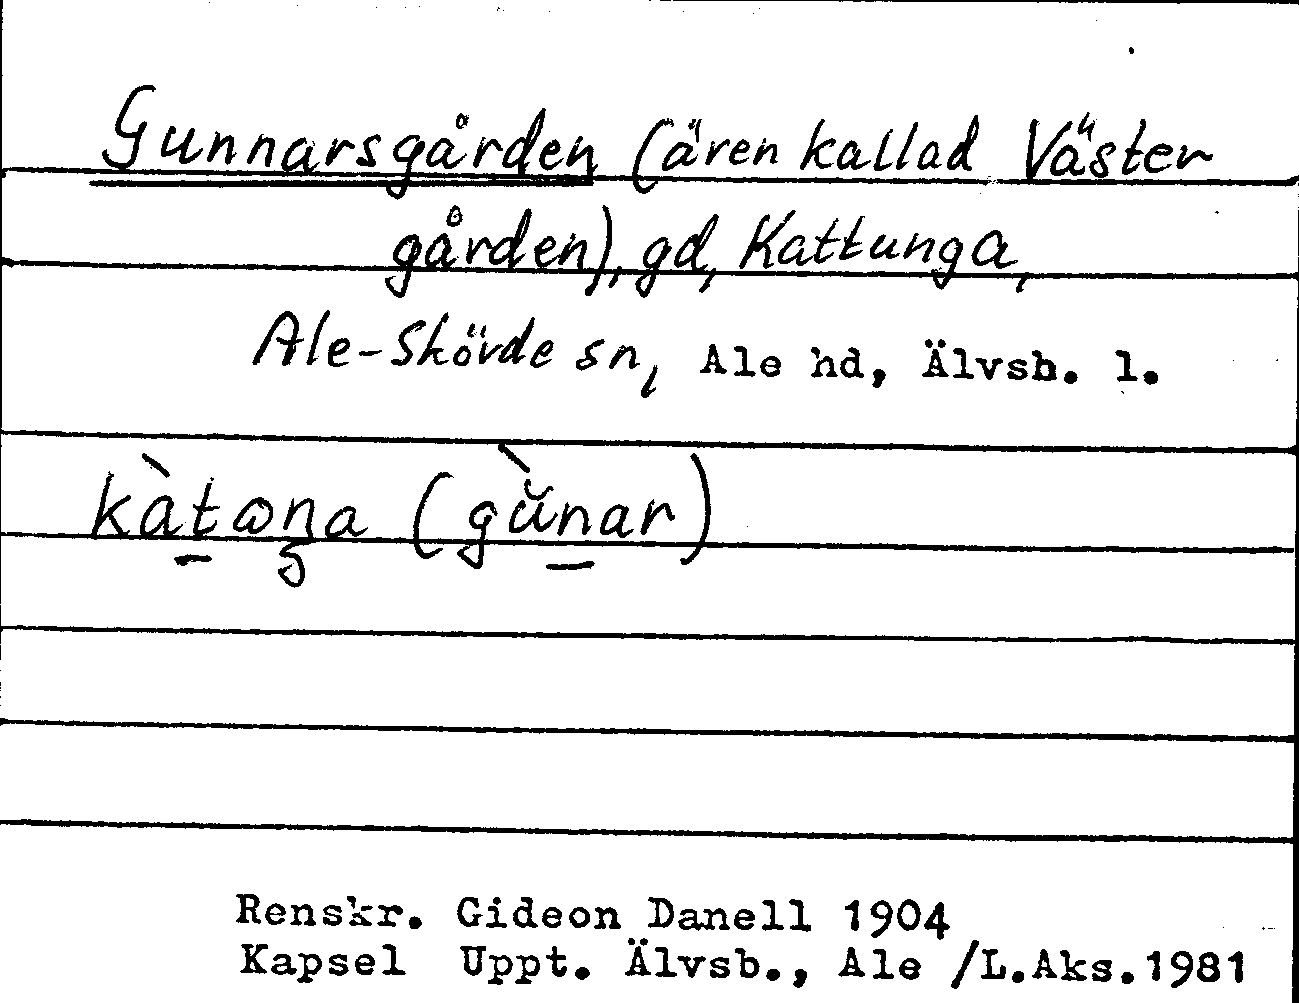 Gunnarsgården (ären kallad Väster
gården), gd, Kattunga,
Ale-Skövde sn, Ale hd, Älvsb. l.
kàtⱺŋa (gùnar)
Renskr. Gideon Danell 1904
Kapsel Uppt. Älvsb., Ale /L.Aks.1981